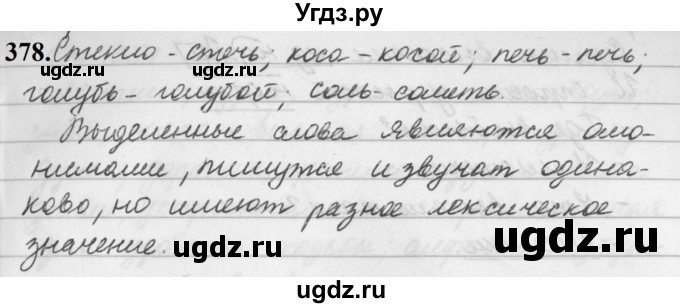 Угдз.ру
378. Стекло - стечь; коса - косой; печь - печь;
голубь - голубой; соль - солить.
Выделенные слова являются омо-
нимами, пишутся и звучат одина-
ково, но имеют разное лексическое
значение.
ugdz.ru
ugdz.ru
ugdz.ru
ugdz.ru
ugdz.ru
ugdz.ru
ugdz.ru